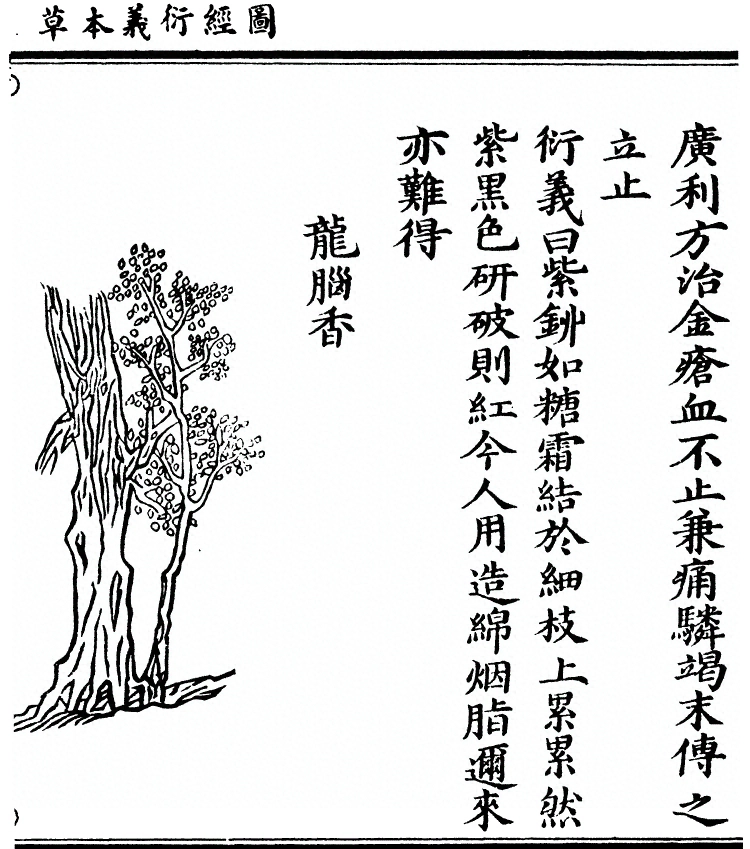 圖經衍義本草
廣利方治金瘡血不止兼痛驎竭末傳之
立止
衍義曰紫鉚如糖霜結於細枝上累累然
紫黑色研破則紅今人用造綿烟脂邇來
亦難得
龍腦香